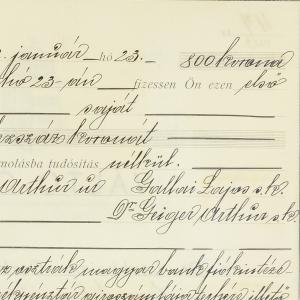 január hó 23. 800 korona
hó 23-án fizessen Ön ezen első
saját
száz koronát
tudósítás nélkül.
Arthur úr Gallai Lajos s.k.
Dr Geiger Arthur s.k.
osztrák magyar bank